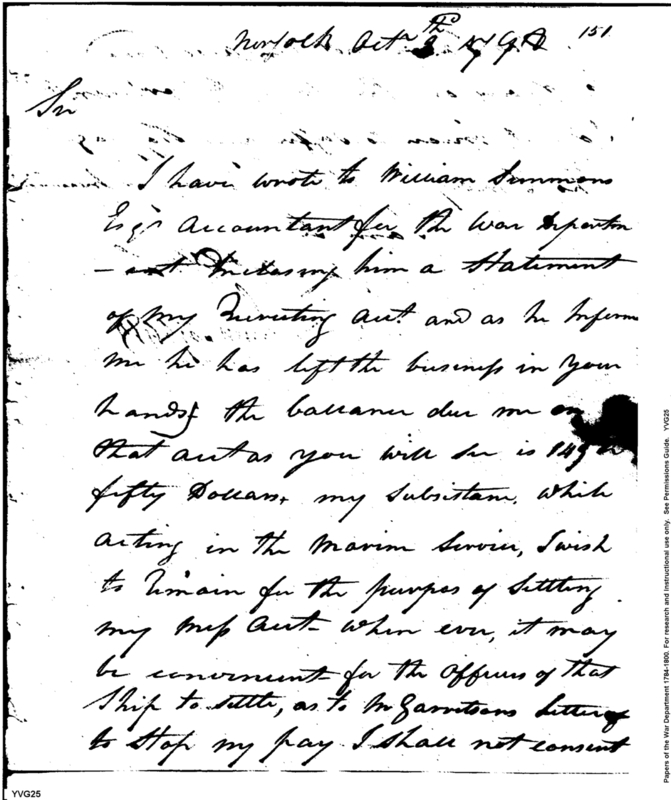 Norfolk Octr 3th 179
151
Sir
I have wrote to William Simmons
Esqr Accountant for the War Departm
-ent Inclosing him a Statement
of my Recruiting Acct. and as he Inform
me he has left the business in your
hands the ballance due me on
that acct as you will see is 149
fifty Dollars, my Subsistanc, while
acting in the Marine Service, I wish
to Remain for the purpos of Settling
my Mess Acct - when ever, it may
be convenient for the Officers of that
Ship to settle, as to Mr Garretsons Letter of
to Stop my pay I shall not consent
YVG25
Papers of the War Department 1784-1800. For research and instructional use only. See Permissions Guide. YVG25